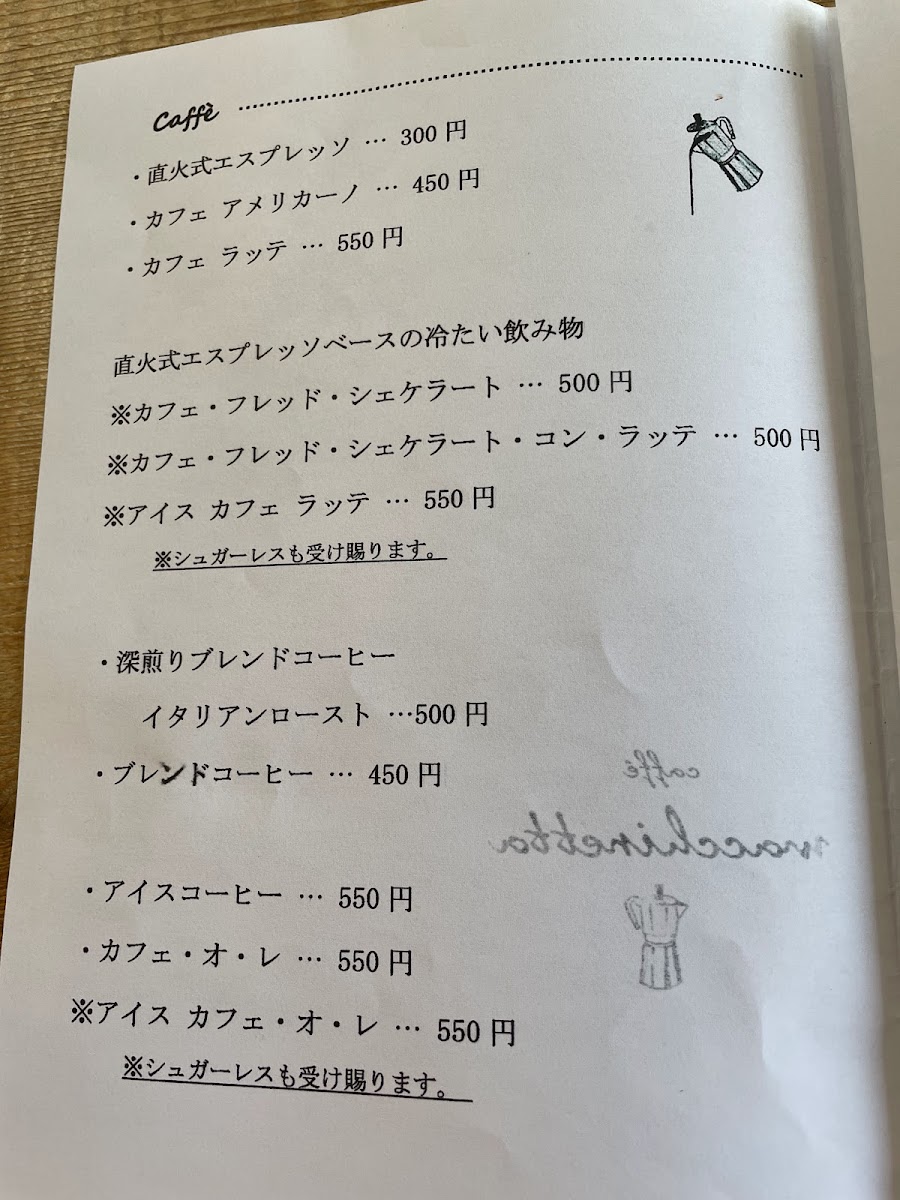 Caffè
・直火式エスプレッソ … 300 円
・カフェ アメリカーノ … 450 円
・カフェ ラッテ … 550 円
直火式エスプレッソベースの冷たい飲み物
※カフェ・フレッド・シェケラート … 500 円
※カフェ・フレッド・シェケラート・コン・ラッテ … 500 円
※アイス カフェ ラッテ … 550 円
※シュガーレスも受け賜ります。
・深煎りブレンドコーヒー
イタリアンロースト …500 円
・ブレンドコーヒー … 450 円
caffè
macchinetta
・アイスコーヒー … 550 円
・カフェ・オ・レ … 550 円
※アイス カフェ・オ・レ … 550 円
※シュガーレスも受け賜ります。